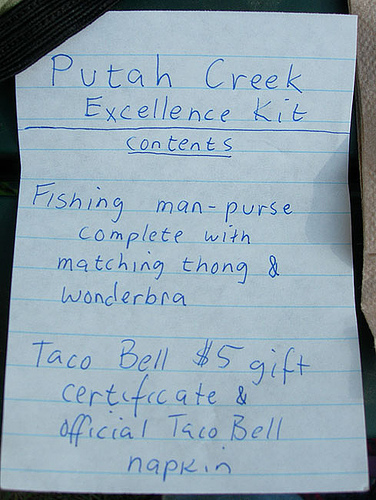 Putah Creek
Excellence Kit
contents
Fishing man-purse
complete with
matching thong &
wonderbra
Taco Bell $5 gift
certificate &
official Taco Bell
napkin